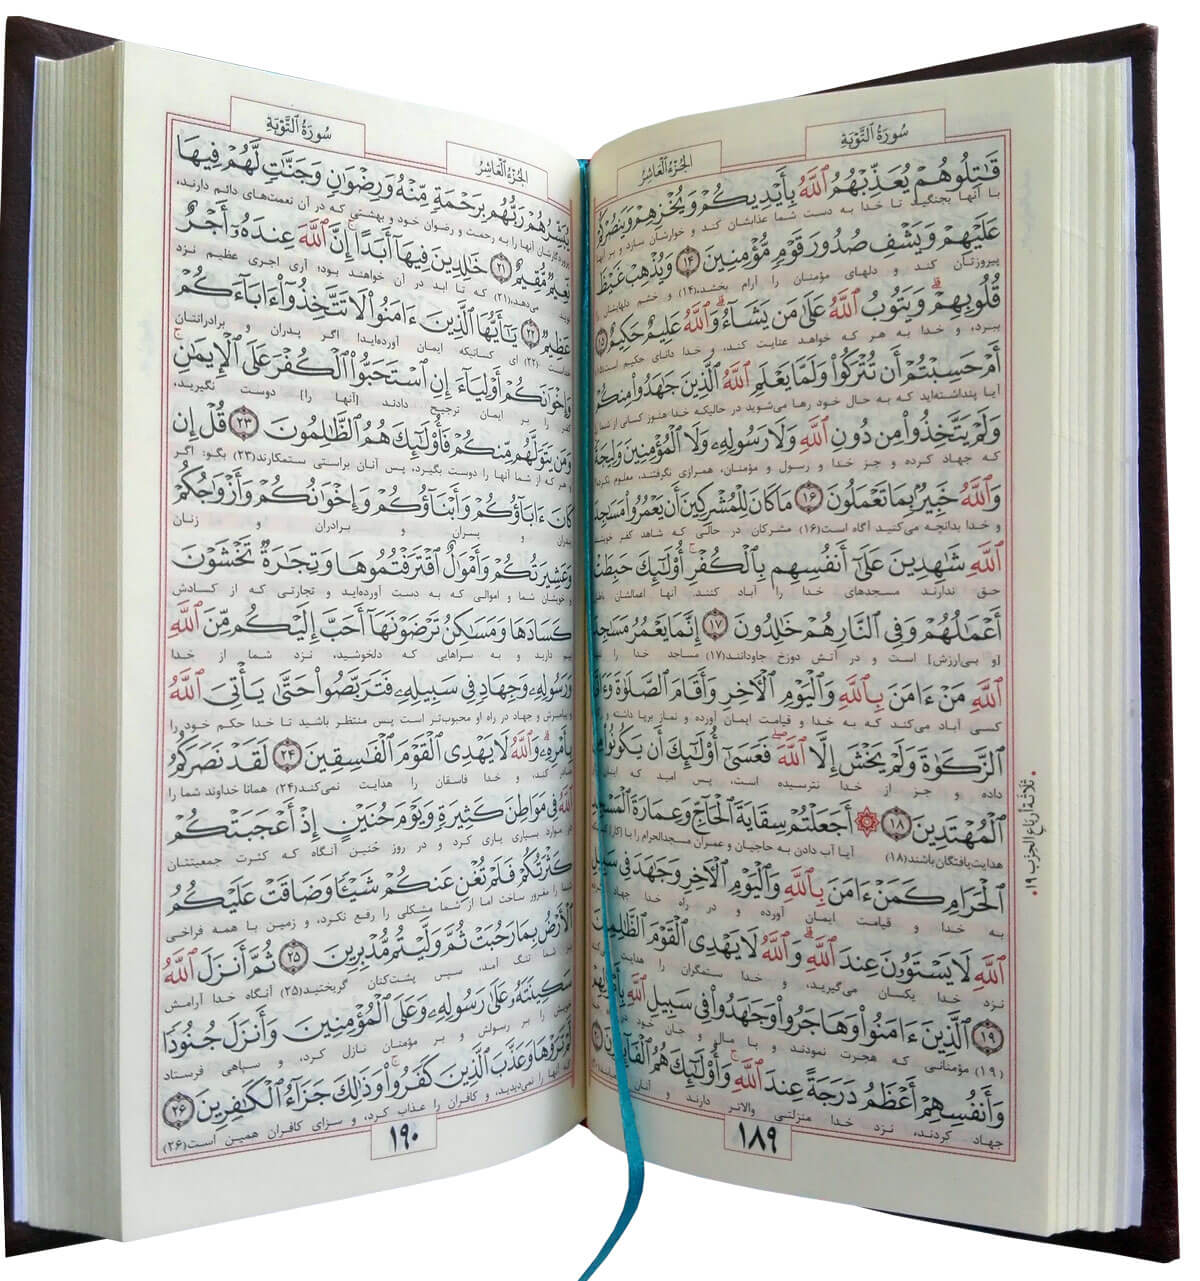 سُورَةُ ٱلتَّوْبَةِ
الجُزْءُ العَاشِرُ
قَٰتِلُوهُمْ يُعَذِّبْهُمُ ٱللَّهُ بِأَيْدِيكُمْ وَيُخْزِهِمْ وَيَنصُرْكُمْ
با آنها بجنگید تا خدا به دست شما عذابشان کند و خوارشان سازد و بر آنها
عَلَيْهِمْ وَيَشْفِ صُدُورَ قَوْمٍ مُّؤْمِنِينَ ﴿١٤﴾ وَيُذْهِبْ غَيْظَ
پیروزتان کند و دلهای مؤمنان را آرام بخشد،(۱۴) و خشم دلهایشان
قُلُوبِهِمْ ۗ وَيَتُوبُ ٱللَّهُ عَلَىٰ مَن يَشَآءُ ۗ وَٱللَّهُ عَلِيمٌ حَكِيمٌ ﴿١٥﴾
ببرد، و خدا به هر که خواهد عنایت کند، و خدا دانای حکیم است
أَمْ حَسِبْتُمْ أَن تُتْرَكُوا۟ وَلَمَّا يَعْلَمِ ٱللَّهُ ٱلَّذِينَ جَٰهَدُوا۟ مِنكُمْ
آیا پنداشته‌اید که به حال خود رها می‌شوید در حالیکه خدا هنوز کسانی از شما
وَلَمْ يَتَّخِذُوا۟ مِن دُونِ ٱللَّهِ وَلَا رَسُولِهِۦ وَلَا ٱلْمُؤْمِنِينَ وَلِيجَةً
که جهاد کرده و جز خدا و رسول و مؤمنان، همرازی نگرفتند، معلوم
وَٱللَّهُ خَبِيرٌۢ بِمَا تَعْمَلُونَ ﴿١٦﴾ مَا كَانَ لِلْمُشْرِكِينَ أَن يَعْمُرُوا۟ مَسَٰجِدَ
و خدا بدانچه می‌کنید آگاه است(۱۶) مشرکان در حالی که شاهد کفر
ٱللَّهِ شَٰهِدِينَ عَلَىٰٓ أَنفُسِهِم بِٱلْكُفْرِ ۚ أُو۟لَٰٓئِكَ حَبِطَتْ
حق ندارند مسجدهای خدا را آباد کنند. آنها اعمالشان
أَعْمَٰلُهُمْ وَفِى ٱلنَّارِ هُمْ خَٰلِدُونَ ﴿١٧﴾ إِنَّمَا يَعْمُرُ مَسَٰجِدَ
[و بی‌ارزش] است و در آتش دوزخ جاودانند(۱۷) مساجد خدا را
ٱللَّهِ مَنْ ءَامَنَ بِٱللَّهِ وَٱلْيَوْمِ ٱلْءَاخِرِ وَأَقَامَ ٱلصَّلَوٰةَ وَءَاتَى
کسی آباد می‌کند که به خدا و قیامت ایمان آورده و نماز برپا داشته و
ٱلزَّكَوٰةَ وَلَمْ يَخْشَ إِلَّا ٱللَّهَ ۖ فَعَسَىٰٓ أُو۟لَٰٓئِكَ أَن يَكُونُوا۟ مِنَ
داده و جز از خدا نترسیده است، پس امید که
ٱلْمُهْتَدِينَ ﴿١٨﴾ ۞ أَجَعَلْتُمْ سِقَايَةَ ٱلْحَآجِّ وَعِمَارَةَ ٱلْمَسْجِدِ
هدایت‌یافتگان باشند(۱۸) آیا آب دادن به حاجیان و عمران مسجدالحرام را با
ثَلَاثَةُ أَرْبَاعِ الحِزْب ١٩
ٱلْحَرَامِ كَمَنْ ءَامَنَ بِٱللَّهِ وَٱلْيَوْمِ ٱلْءَاخِرِ وَجَٰهَدَ فِى سَبِيلِ
به خدا و قیامت ایمان آورده و در راه خدا جهاد
ٱللَّهِ ۚ لَا يَسْتَوُۥنَ عِندَ ٱللَّهِ ۗ وَٱللَّهُ لَا يَهْدِى ٱلْقَوْمَ ٱلظَّٰلِمِينَ
نزد خدا یکسان می‌گیرید، و خدا ستمگران را هدایت
﴿١٩﴾ ٱلَّذِينَ ءَامَنُوا۟ وَهَاجَرُوا۟ وَجَٰهَدُوا۟ فِى سَبِيلِ ٱللَّهِ بِأَمْوَٰلِهِمْ
(۱۹) مؤمنانی که هجرت نمودند و با مال و جان خود
وَأَنفُسِهِمْ أَعْظَمُ دَرَجَةً عِندَ ٱللَّهِ ۚ وَأُو۟لَٰٓئِكَ هُمُ ٱلْفَآئِزُونَ ﴿٢٠﴾
جهاد کردند، نزد خدا منزلتی والاتر دارند و آنان
١٨٩
سُورَةُ ٱلتَّوْبَةِ
الجُزْءُ العَاشِرُ
يُبَشِّرُهُمْ رَبُّهُم بِرَحْمَةٍ مِّنْهُ وَرِضْوَٰنٍ وَجَنَّٰتٍ لَّهُمْ فِيهَا
آنها را به رحمت و رضوان خود و بهشتی که در آن نعمت‌های دائم دارند،
نَعِيمٌ مُّقِيمٌ ﴿٢١﴾ خَٰلِدِينَ فِيهَآ أَبَدًا ۚ إِنَّ ٱللَّهَ عِندَهُۥٓ أَجْرٌ
نوید می‌دهد،(۲۱) که تا ابد در آن خواهند بود؛ آری اجری عظیم نزد
عَظِيمٌ ﴿٢٢﴾ يَٰٓأَيُّهَا ٱلَّذِينَ ءَامَنُوا۟ لَا تَتَّخِذُوٓا۟ ءَابَآءَكُمْ
خداست (۲۲) ای کسانیکه ایمان آورده‌اید! اگر پدران و برادرانتان
وَإِخْوَٰنَكُمْ أَوْلِيَآءَ إِنِ ٱسْتَحَبُّوا۟ ٱلْكُفْرَ عَلَى ٱلْإِيمَٰنِ ۚ
کفر را بر ایمان ترجیح دادند [آنها را] دوست نگیرید،
وَمَن يَتَوَلَّهُم مِّنكُمْ فَأُو۟لَٰٓئِكَ هُمُ ٱلظَّٰلِمُونَ ﴿٢٣﴾ قُلْ إِن
و هر که از شما آنها را دوست بگیرد، پس آنان براستی ستمکارند(۲۳) بگو: اگر
كَانَ ءَابَآؤُكُمْ وَأَبْنَآؤُكُمْ وَإِخْوَٰنُكُمْ وَأَزْوَٰجُكُمْ
پدران و پسران و برادران و زنان
وَعَشِيرَتُكُمْ وَأَمْوَٰلٌ ٱقْتَرَفْتُمُوهَا وَتِجَٰرَةٌ تَخْشَوْنَ
و خویشان شما و اموالی که به دست آورده‌اید و تجارتی که از کسادش
كَسَادَهَا وَمَسَٰكِنُ تَرْضَوْنَهَآ أَحَبَّ إِلَيْكُم مِّنَ ٱللَّهِ
بیم دارید و به سراهایی که دلخوشید، نزد شما از خدا
وَرَسُولِهِۦ وَجِهَادٍ فِى سَبِيلِهِۦ فَتَرَبَّصُوا۟ حَتَّىٰ يَأْتِىَ ٱللَّهُ
و پیامبرش و جهاد در راه او محبوب‌تر است پس منتظر باشید تا خدا حکم خود را
بِأَمْرِهِۦ ۗ وَٱللَّهُ لَا يَهْدِى ٱلْقَوْمَ ٱلْفَٰسِقِينَ ﴿٢٤﴾ لَقَدْ نَصَرَكُمُ
صادر کند، و خدا فاسقان را هدایت نمی‌کند(۲۴) همانا خداوند شما را
ٱللَّهُ فِى مَوَاطِنَ كَثِيرَةٍ ۙ وَيَوْمَ حُنَيْنٍ ۙ إِذْ أَعْجَبَتْكُمْ
در موارد بسیاری یاری کرد و در روز حُنین آنگاه که کثرت جمعیتتان
كَثْرَتُكُمْ فَلَمْ تُغْنِ عَنكُمْ شَيْـًٔا وَضَاقَتْ عَلَيْكُمُ
شما را مغرور ساخت اما از شما مشکلی را رفع نکرد، و زمین با همه فراخی
ٱلْأَرْضُ بِمَا رَحُبَتْ ثُمَّ وَلَّيْتُم مُّدْبِرِينَ ﴿٢٥﴾ ثُمَّ أَنزَلَ ٱللَّهُ
بر شما تنگ آمد، سپس پشت‌کنان گریختید(۲۵) آنگاه خدا آرامش
سَكِينَتَهُۥ عَلَىٰ رَسُولِهِۦ وَعَلَى ٱلْمُؤْمِنِينَ وَأَنزَلَ جُنُودًا
خویش را بر رسولش و بر مؤمنان نازل کرد، و سپاهی فرستاد
لَّمْ تَرَوْهَا وَعَذَّبَ ٱلَّذِينَ كَفَرُوا۟ ۚ وَذَٰلِكَ جَزَآءُ ٱلْكَٰفِرِينَ ﴿٢٦﴾
که آنها را نمی‌دیدید، و کافران را عذاب کرد، و سزای کافران همین است(۲۶)
١٩٠